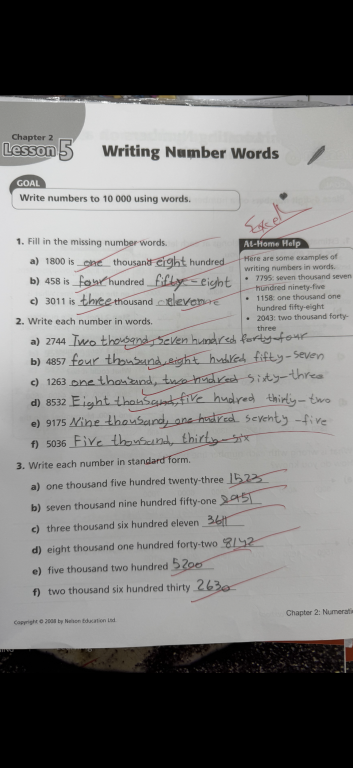 Chapter 2
Lesson 5
Writing Number Words
GOAL
Write numbers to 10 000 using words.
Excell
1. Fill in the missing number words.
a) 1800 is one thousand eight hundred
b) 458 is four hundred fifty-eight
c) 3011 is three thousand eleven
At-Home Help
Here are some examples of
writing numbers in words.
• 7795: seven thousand seven
hundred ninety-five
• 1158: one thousand one
hundred fifty-eight
• 2043: two thousand forty-
three
2. Write each number in words.
a) 2744 Two thousand, seven hundred forty-four
b) 4857 four thousand, eight hudred fifty-seven
c) 1263 one thousand, two hudred sixty-three
d) 8532 Eight thousand, five hudred thirty-two
e) 9175 Nine thousand, one hudred seventy-five
f) 5036 Five thousand, thirty-six
3. Write each number in standard form.
a) one thousand five hundred twenty-three 1523
b) seven thousand nine hundred fifty-one
c) three thousand six hundred eleven 3611
d) eight thousand one hundred forty-two 8142
e) five thousand two hundred 5200
f) two thousand six hundred thirty 2630
Chapter 2: Numerati
Copyright © 2008 by Nelson Education Ltd.